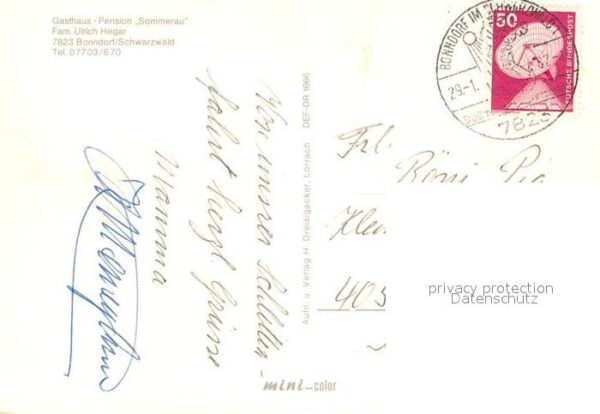 Gasthaus - Pension „Sommerau"
Fam. Ulrich Hegar
7823 Bonndorf/Schwarzwald
Tel. 07703/670
BONNDORF IM SCHWARZWALD
29.-1.
7823
50
DEUTSCHE BUNDESPOST
Von unserer Schlitten-
fahrt herzl. Grüsse
Mamma
Aufn. u. Verlag H. Dreisigacker, Lörrach DEF-DR 1666
Frl.
405
privacy protection
Datenschutz
mini-color